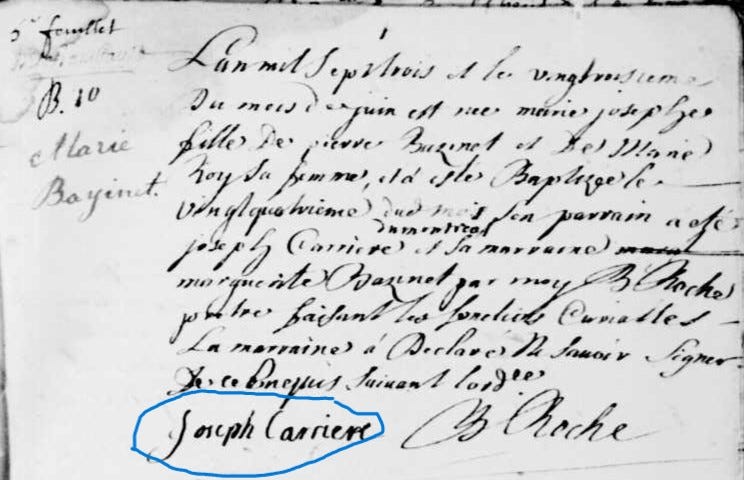 5e fouillet
B. 10
Marie
Bazinet.
L'an mil sept trois et le vingtroisieme
Du mois de juin est née marie josephe
fille De pierre Bazinet et De Marie
Roy sa femme, et a este Baptizée le
vingtquatrieme dud mois son parrain a esté
dumontreal
joseph Carriere et sa marraine
marguerite Bazinet par moy B Roche
pretre faisant les fonctions Curialles
La marraine a Declaré Ne savoir signer
De ce Enquis suivant lordce
Joseph Carriere B Roche